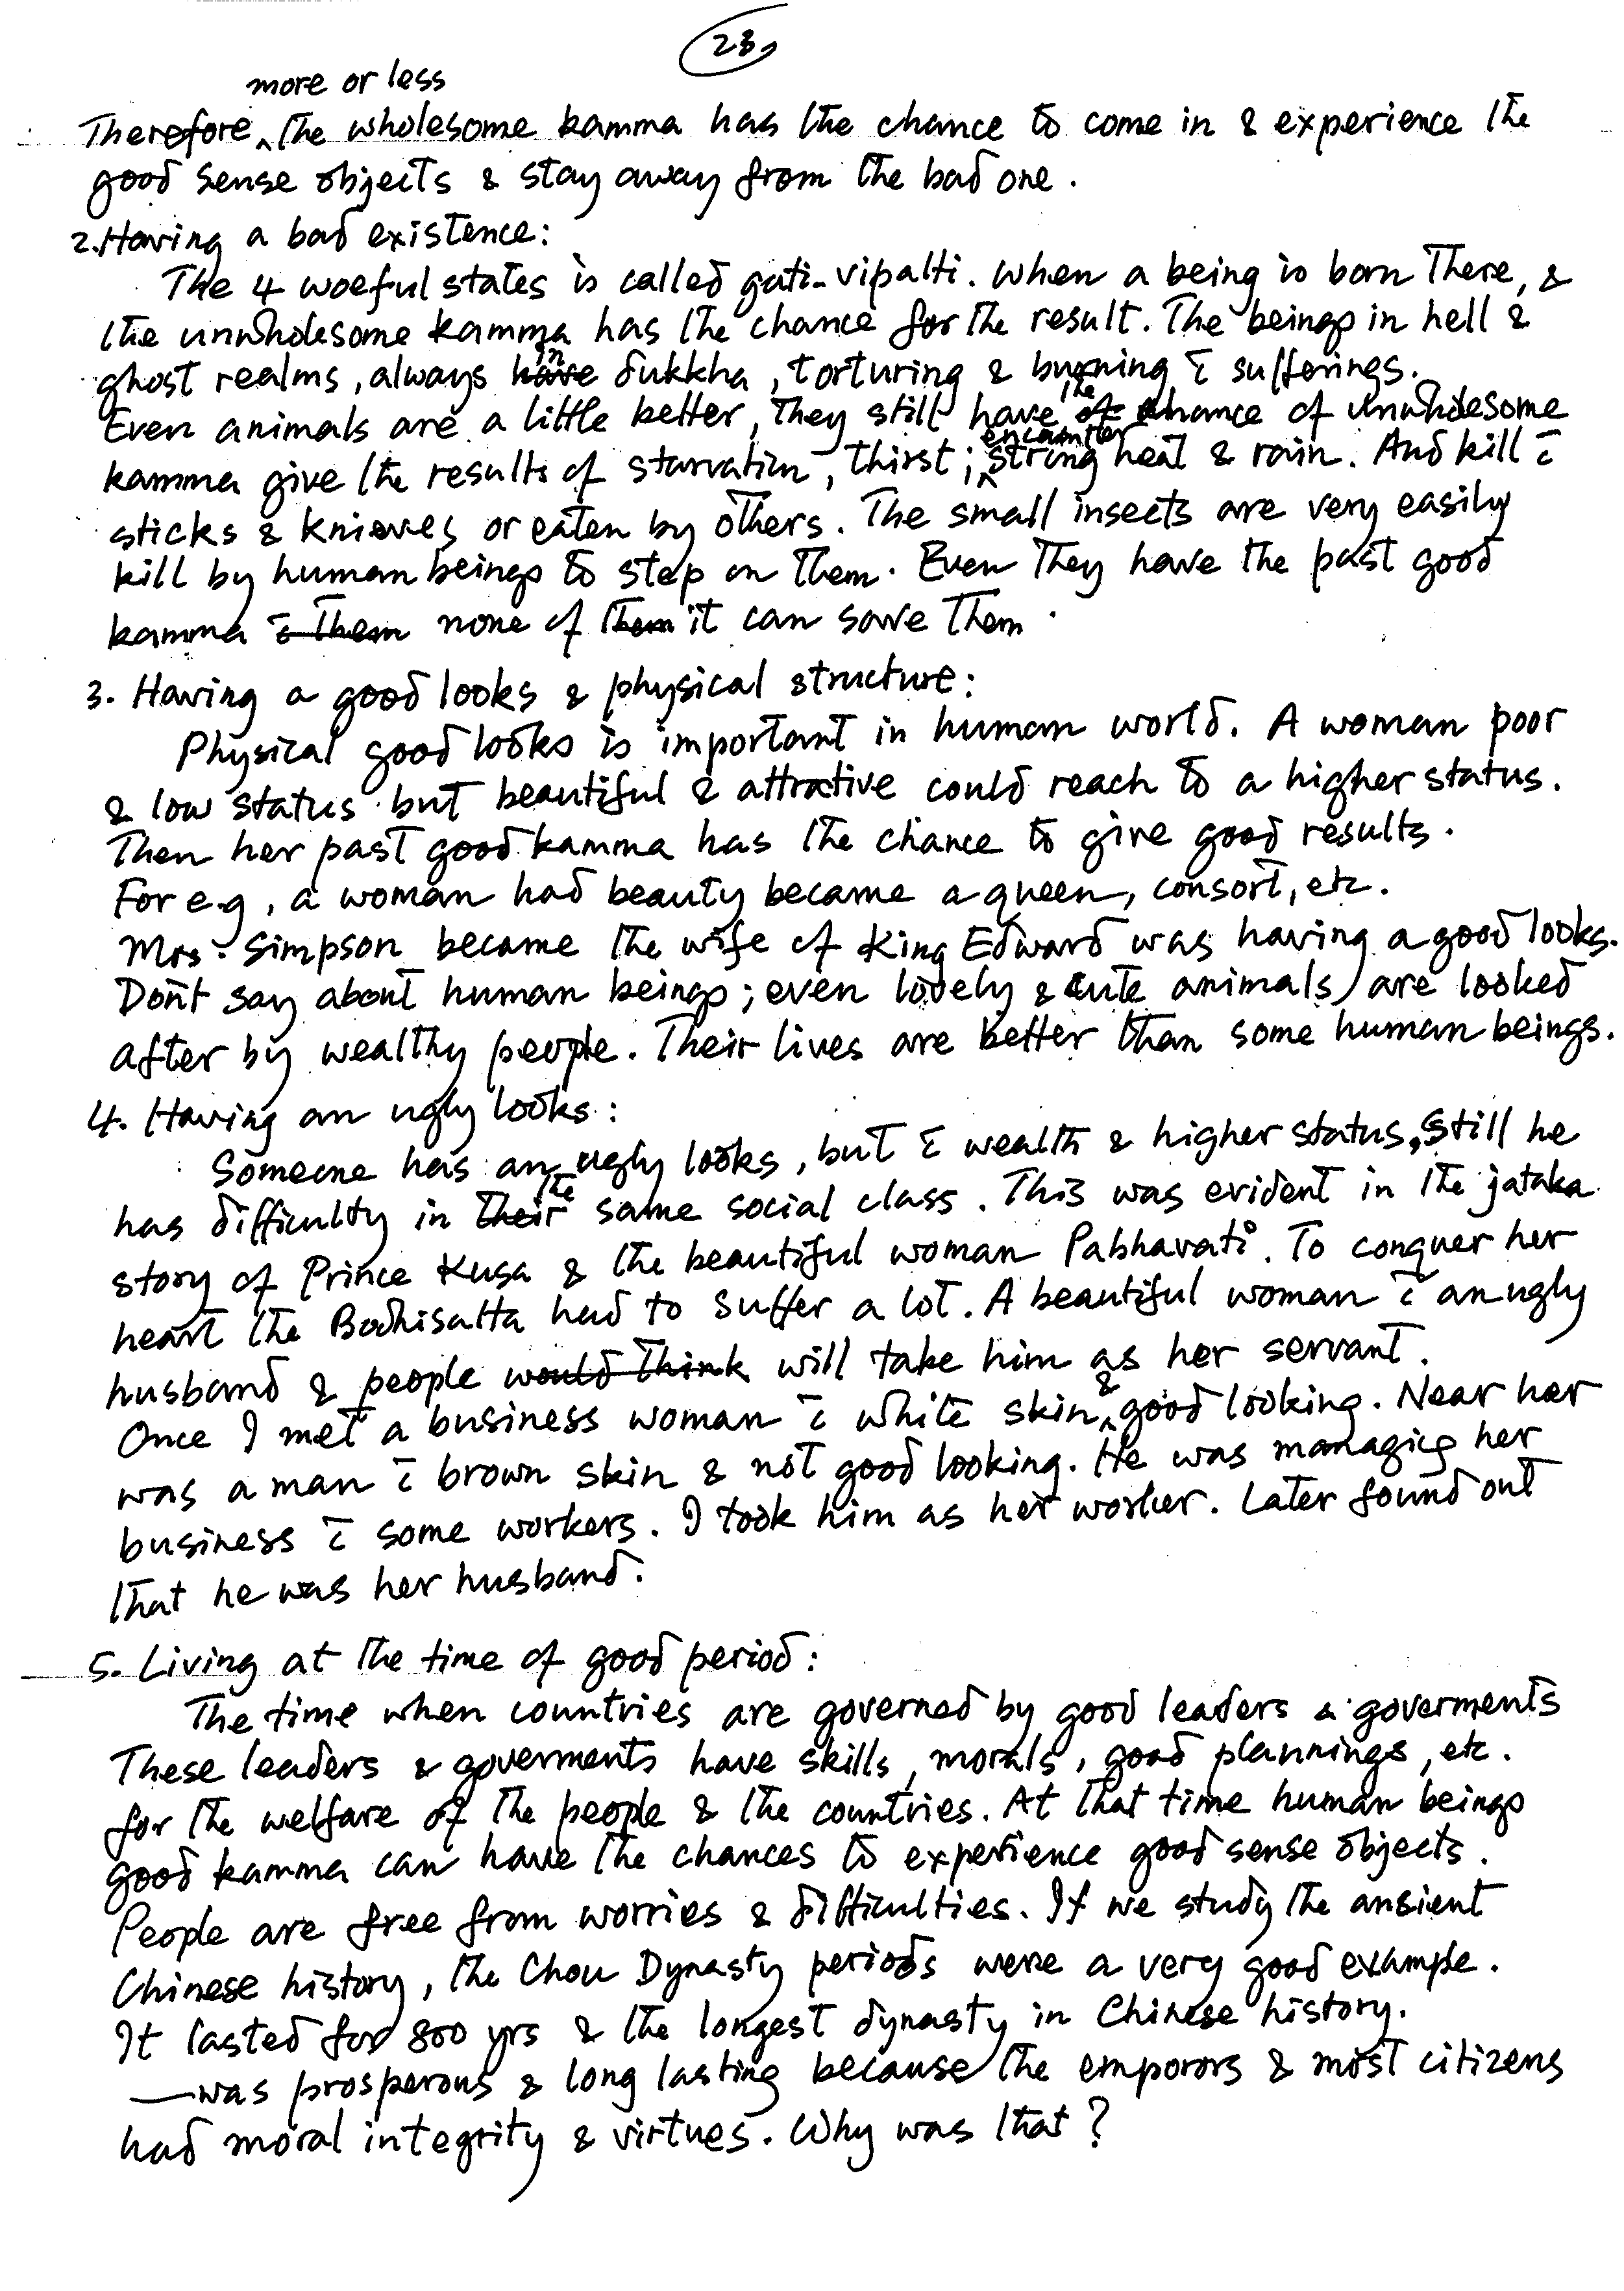 23,
more or less
Therefore ^ the wholesome kamma has the chance to come in & experience the
good sense objects & stay away from the bad one.
2. Having a bad existence:
The 4 woeful states is called gati-vipatti. When a being is born there, &
the unwholesome kamma has the chance for the result. The beings in hell &
ghost realms, always have in dukkha, torturing & burning c̄ sufferings.
Even animals are a little better, they still have of the chance of unwholesome
kamma give the results of starvation, thirst; ^ encounter strong heat & rain. And kill c̄
sticks & knieves or eaten by others. The small insects are very easily
kill by human beings to step on them. Even they have the past good
kamma c̄ them none of them it can save them.
3. Having a good looks & physical structure:
Physical good looks is important in human world. A woman poor
& low status but beautiful & attractive could reach to a higher status.
Then her past good kamma has the chance to give good results.
For e.g, a woman had beauty became a queen, consort, etc.
Mrs. Simpson became the wife of King Edward was having a good looks.
Don't say about human beings; even lovely & cute animals are looked
after by wealthy people. Their lives are better than some human beings.
4. Having an ugly looks:
Someone has an ugly looks, but c̄ wealth & higher status, still he
has difficulty in their the same social class. This was evident in the jataka
story of Prince Kusa & the beautiful woman Pabhavati. To conquer her
heart the Bodhisatta had to suffer a lot. A beautiful woman c̄ an ugly
husband & people would think will take him as her servant.
Once I met a business woman c̄ white skin ^ & good looking. Near her
was a man c̄ brown skin & not good looking. He was managing her
business c̄ some workers. I took him as her worker. Later found out
that he was her husband.
5. Living at the time of good period:
The time when countries are governed by good leaders & goverments
These leaders & goverments have skills, morals, good plannings, etc.
for the welfare of the people & the countries. At that time human beings
good kamma can have the chances to experience good sense objects.
People are free from worries & difficulties. If we study the ansient
Chinese history, the Chou Dynasty periods were a very good example.
It lasted for 800 yrs & the longest dynasty in Chinese history.
—was prosperous & long lasting because the emporors & most citizens
had moral integrity & virtues. Why was that?